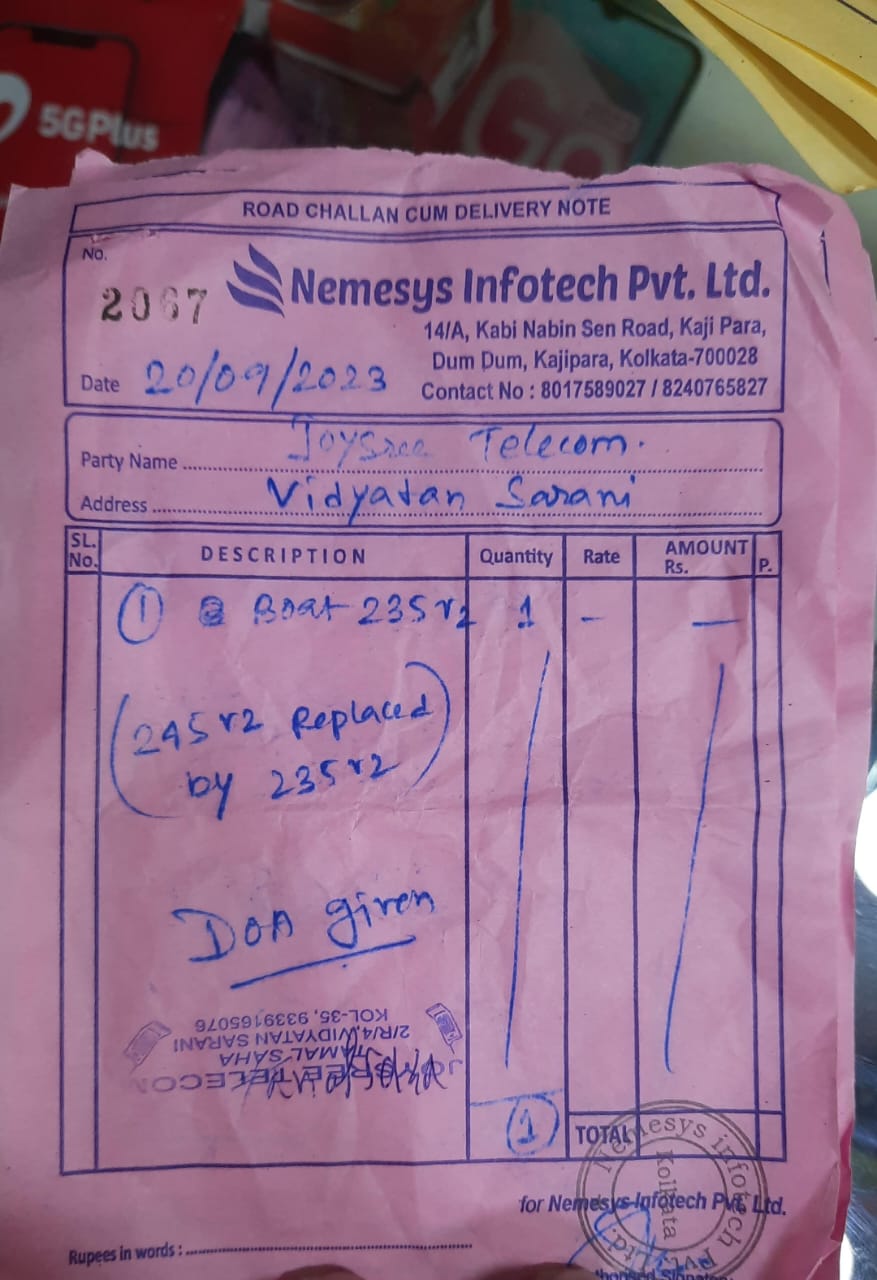 5GPlus
Go
ROAD CHALLAN CUM DELIVERY NOTE
No.
2067
Nemesys Infotech Pvt. Ltd.
14/A, Kabi Nabin Sen Road, Kaji Para,
Dum Dum, Kajipara, Kolkata-700028
Date 20/09/2023
Contact No : 8017589027 / 8240765827
Party Name Joysree Telecom.
Address Vidyatan Sarani
SL. No. DESCRIPTION Quantity Rate AMOUNT Rs. P.
① Boat 235v2 1 – —
(245v2 Replaced
by 235v2)
DOA given
JOYSREE TELECOM
TAMAL SAHA
2/R/4, VIDYATAN SARANI
KOL-35, 9339165076
① TOTAL
Nemesys Infotech Pvt. Ltd.
Kolkata
for Nemesys Infotech Pvt. Ltd.
Rupees in words :